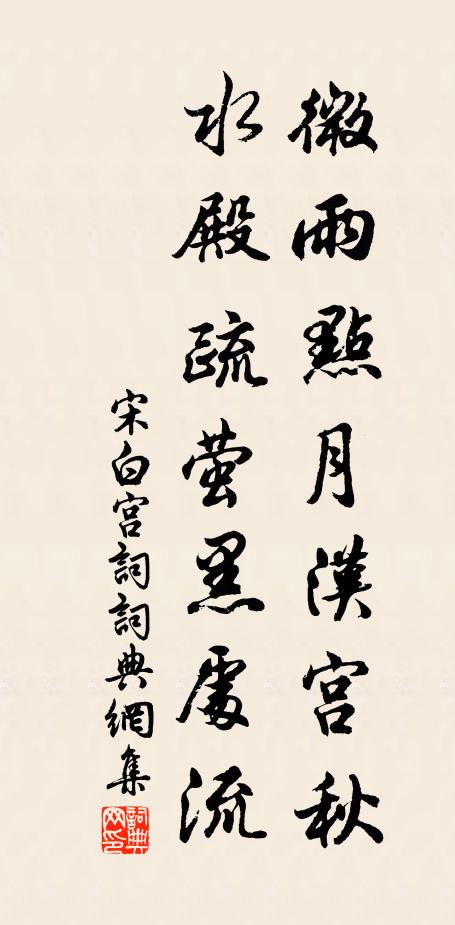 微雨點月漢宮秋
水殿疏螢黑處流
宋白宮詞詞典網集
詞典网印